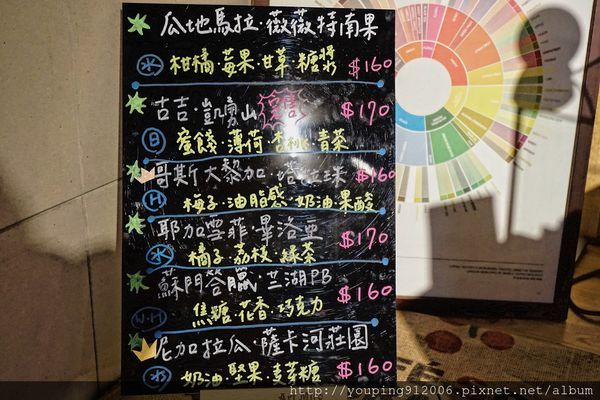 瓜地馬拉·薇薇特南果
水 柑橘·莓果·甘草·糖漿 $160
古吉·凱勇山 復售 $170
日 蜜餞·薄荷·杏桃·青茶
哥斯大黎加·塔拉珠 $160
H 梅子·油脂感·奶油·果酸
耶加雪菲·畢洛亞 $170
水 橘子·荔枝·綠茶
蘇門答臘·兰湖PB $160
W.H 焦糖·花香·巧克力
尼加拉瓜·薩卡河莊園
水 奶油·堅果·麥芽糖 $160
http://youping912006.pixnet.net/album